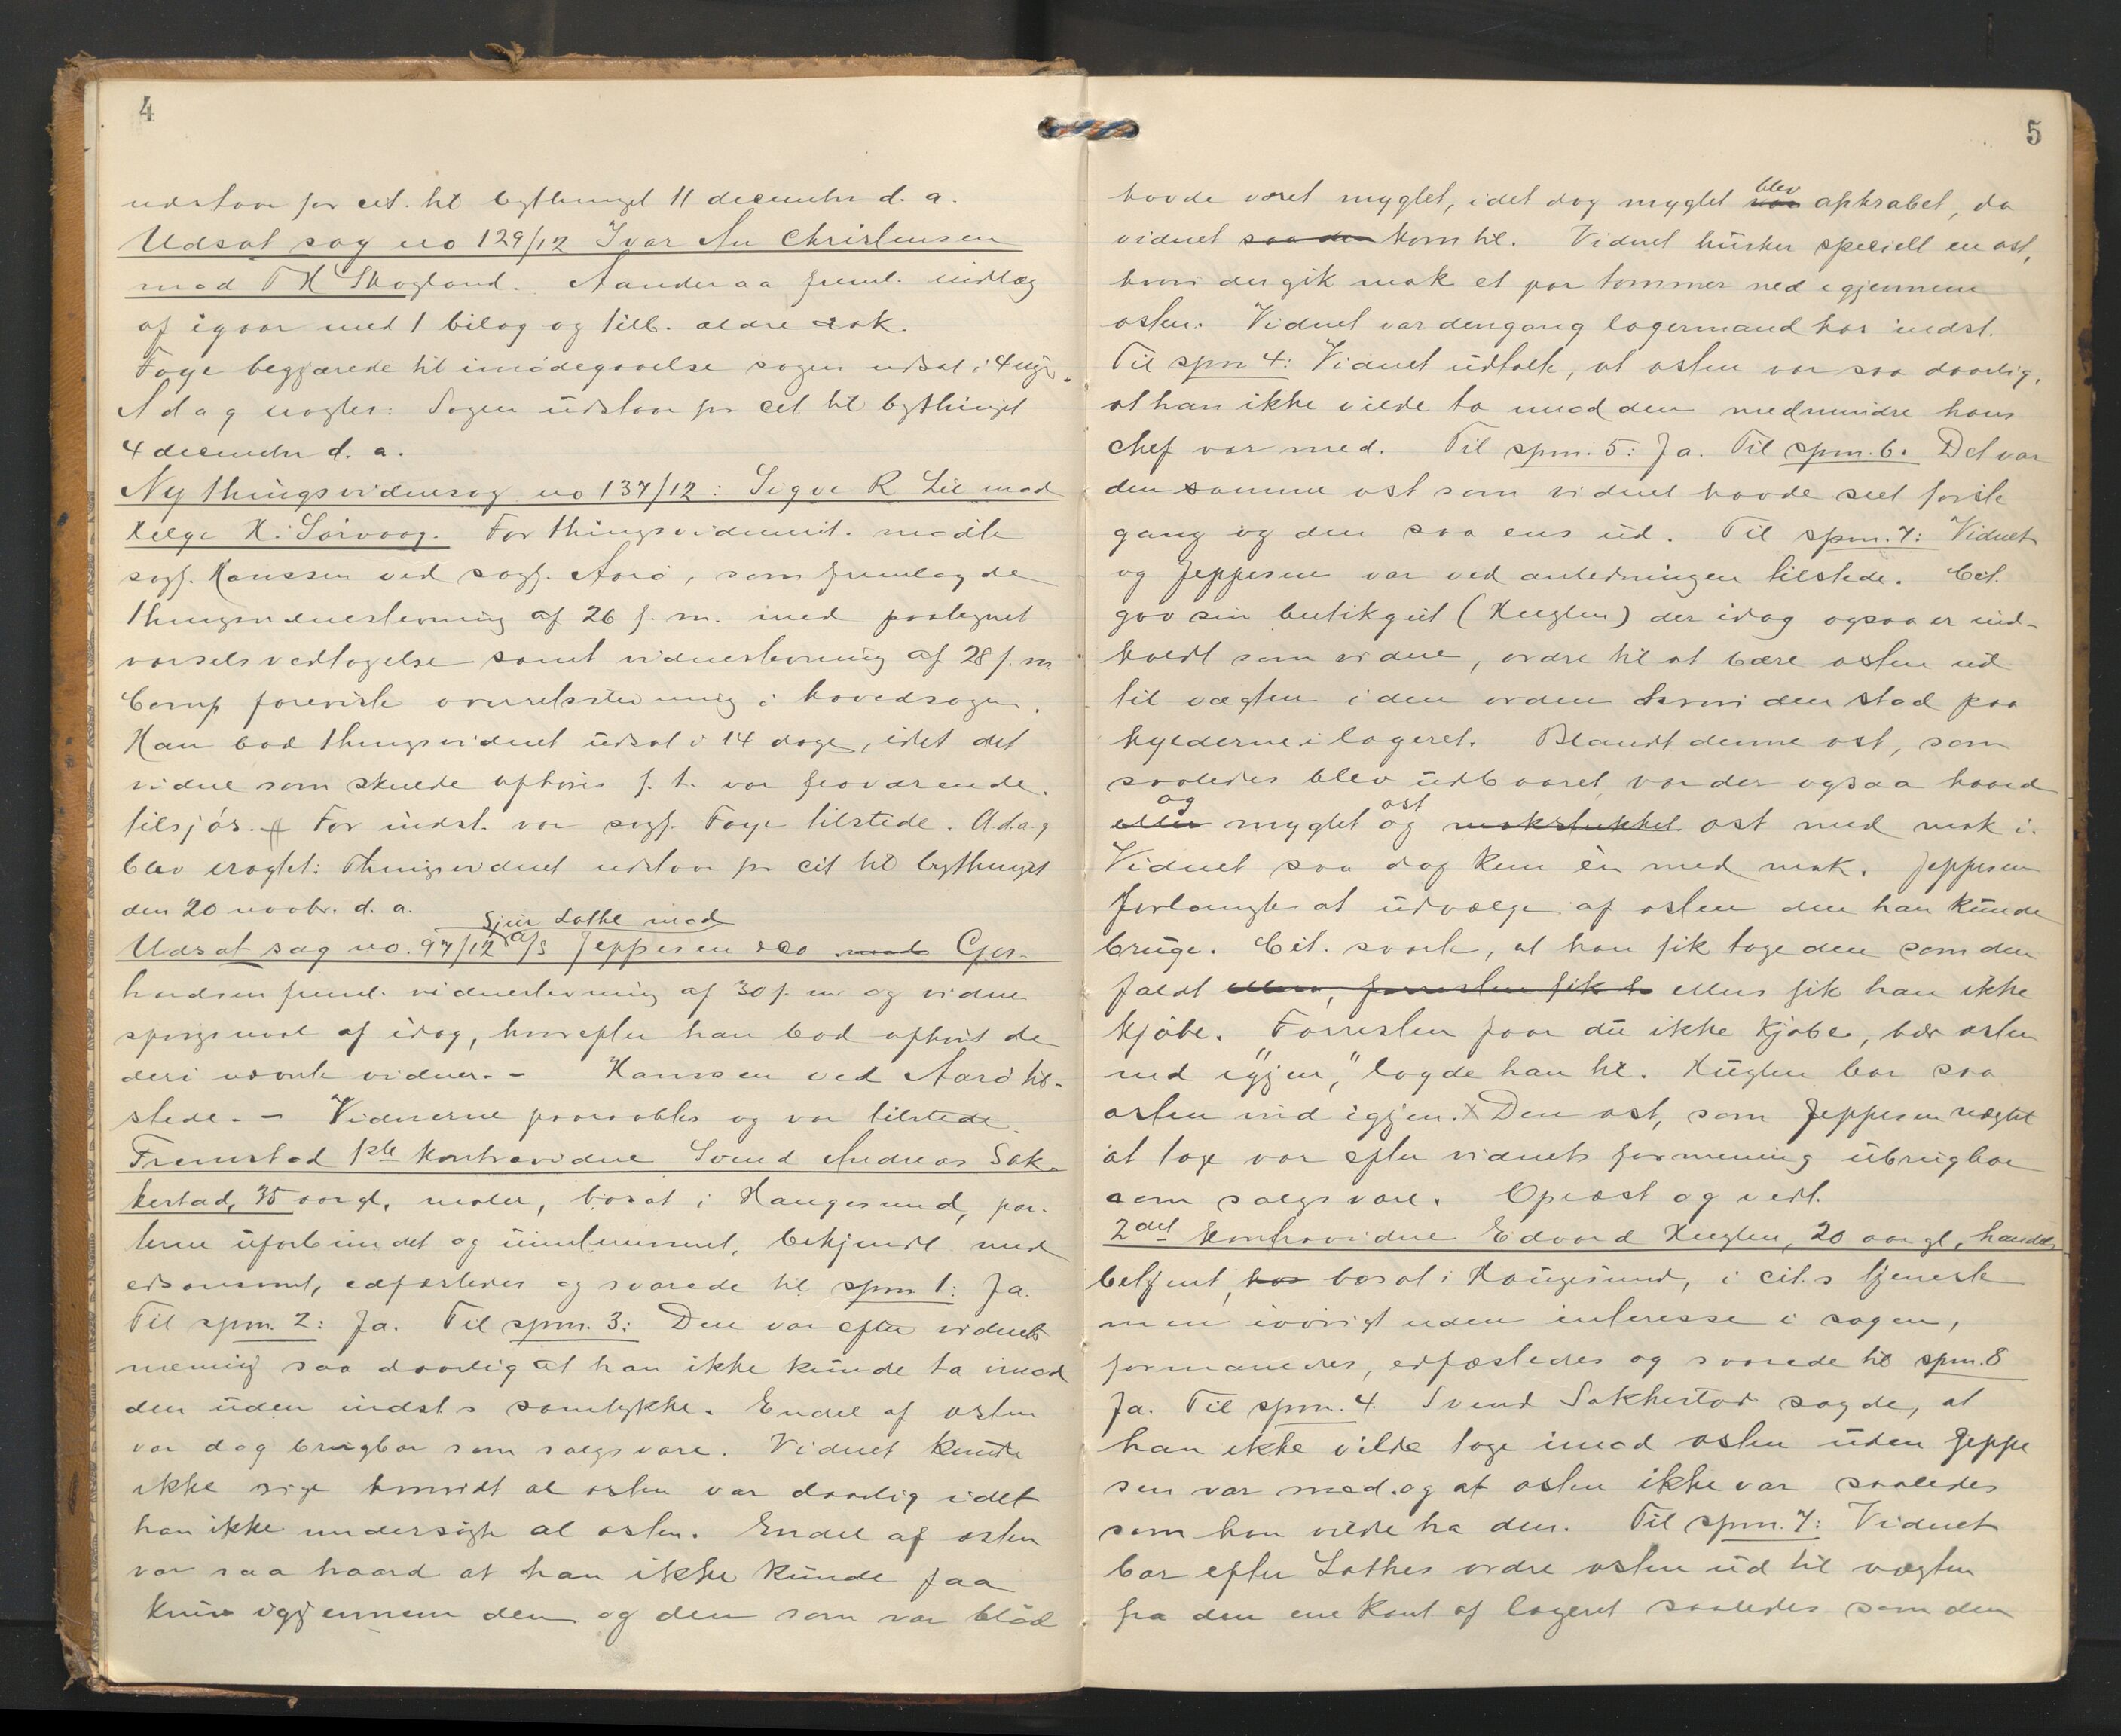 4
udstaar for cit. til bythinget 11 december d. a.
Udsat sag no 129/12 Ivar An Christensen
mod T H Skogland. Aanderaa freml. indlæg
af igaar med 1 bilag og tilb. ældre dok.
Foye begjærede til imødegaaelse sagen udsat i 4 uger.
A d a g eragtes: Sagen udstaar for cit til bythinget
4 december d. a.
Ny thingsvidnesag no 137/12: Sigve R Lie mod
Helge H. Sørvaag. For thingsvidnecit. mødte
sagf. Hanssen ved sagf. Aarø, som fremlagde
thingsvidnestevning af 26 f. m. med paategnet
varselsvedtagelse samt vidnestevning af 28 f. m
Comp foreviste overretsstevning i hovedsagen.
Han bad thingsvidnet udsat i 14 dage, idet det
vidne som skulde afhøris f. t. var fraværende
tilsjøs. For indst. var sagf. Foye tilstede. A.d.a.g
blev eragtet: Thingsvidnet udstaar for cit til bythinget
den 20 novbr. d. a.
Sjur Lothe mod
Udsat sag no. 97/12 A/S Jeppesen &co mod Ger-
hardsen freml. vidnestevning af 30 f. m og vidne
spørgsmaal af idag, hvorefter han bad afhørt de
deri nævnte vidner. - Hanssen ved Aarø til-
stede. - Vidnerne paaraabtes og var tilstede.
Fremstod 1ste kontravidne Svend Andreas Sak-
kestad, 35 aar gl. maler, bosat i Haugesund, par-
terne uforbundet og uimteresseret, bekjendt med
edsansvaret, edfæstedes og svarede til spm 1: Ja.
Til spm. 2: Ja. Til spm. 3: Den var efter vidnets
mening saa daarlig at han ikke kunde ta imod
den uden indst s samtykke. Endel af osten
var dog brugbar som salgsvare. Vidnet kunde
ikke sige hvorvidt al osten var daarlig idet
han ikke undersøgte al osten. Endel af osten
var saa haard at han ikke kunde faa
kniv igjennem den og den som var blød
5
havde været myglet, idet dog myglet blev var afskrabet, da
vidnet saa den kom til. Vidnet husker specielt en ost,
hvori der gik mak et par tommer ned igjennem
osten. Vidnet var dengang lagermand hos indst.
Til spm 4: Vidnet udtalte, at osten var saa daarlig,
at han ikke vilde ta imod den medmindre hans
chef var med. Til spm. 5: Ja. Til spm. 6. Det var
den samme ost som vidnet havde seet første
gang og den saa ens ud. Til spm. 7: Vidnet
og Jeppesen var ved anledningen tilstede. Cit.
gav sin butikgut (Huglen) der idag ogsaa er ind-
kaldt som vidne, ordre til at bære osten ud
til vægten i den orden hvori den stod paa
hylderne i lageret. Blandt denne ost, som
saaledes blev udbaaret var der ogsaa haard
og ost
eller myglet og makstukket ost med mak i.
Vidnet saa dog kun èn med mak. Jeppesen
forlangte at udvælge af osten den han kunde
bruge. Cit. svarte, at han fik tage den som den
faldt ellers, forresten fik h ellers fik han ikke
kjøbe. "Forresten faar du ikke kjøbe, bær osten
ind igjen," lagde han til. Huglen bar saa
osten ind igjen. x Den ost, som Jeppesen nægtet
at tage var efter vidnets formening ubrugbar
som salgsvare. Oplæst og vedt.
2det kontravidne Edvard Huglen, 20 aar gl, handels
betjent, hos bosat i Haugesund, i cit.s tjeneste
men iøvrigt uden interesse i sagen,
formanedes, edfæstedes og svarede til spm. 8
Ja. Til spm. 4. Svend Sakkestad sagde, at
han ikke vilde tage imod osten uden Jeppe
sen var med. og at osten ikke var saaledes
som han vilde ha den. Til spm. 7: Vidnet
bar efter Lothes ordre osten ud til vægten
fra den ene kant af lageret saaledes som den